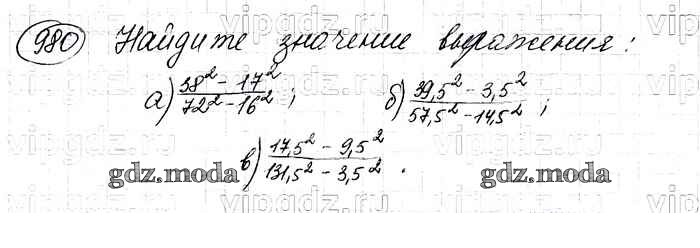 980 Найдите значение выражения:
а) (38² - 17²)/(72² - 16²); б) (39,5² - 3,5²)/(57,5² - 14,5²);
в) (17,5² - 9,5²)/(131,5² - 3,5²).
gdz.moda gdz.moda gdz.moda
vipgdz.ru